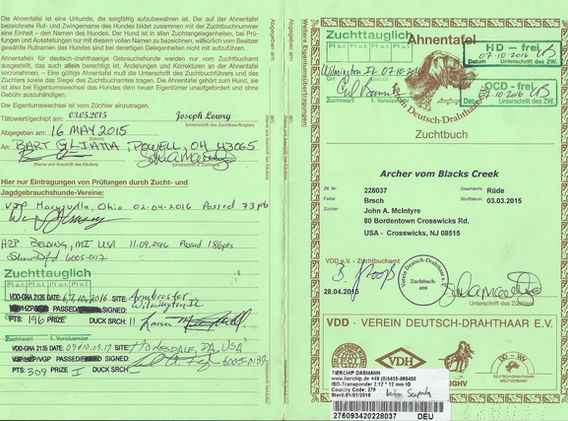 Die Ahnentafel ist eine Urkunde, die sorgfältig aufzubewahren ist. Der auf der Ahnentafel
bezeichnete Ruf- und Zwingername des Hundes bildet zusammen mit der Zuchtbuchnummer
eine Einheit - den Namen des Hundes. Der Hund ist in allen Zuchtangelegenheiten, bei Prü-
fungen und Ausstellungen nur mit diesem vollen Namen zu bezeichnen, willkürlich vom Besitzer
gewählte Rufnamen des Hundes sind bei derartigen Gelegenheiten nicht mit aufzuführen.
Ahnentafeln für deutsch-drahthaarige Gebrauchshunde werden nur vom Zuchtbuchamt
ausgestellt, das auch allein berechtigt ist, Änderungen und Korrekturen an der Ahnentafel
vorzunehmen. – Eine gültige Ahnentafel muß die Unterschrift des Zuchtbuchführers und des
Züchters sowie das Siegel des Zuchtbuchamtes tragen. Die Ahnentafel gehört zum Hund, sie
ist also bei Eigentumswechsel des Hundes dem neuen Eigentümer unaufgefordert und ohne
Gebühr auszuhändigen.
Der Eigentumswechsel ist vom Züchter einzutragen.
Tätowiert/gechipt am: 03.03.2015 Joseph Lowry
(Unterschrift des Zuchtbeauftragten)
Abgegeben am: 16 MAY 2015
An: BART GLIATTA, POWELL, OH 43065
(Name und Anschrift des Käufers) (Unterschrift des Züchters)
Hier nur Eintragungen von Prüfungen durch Zucht- und
Jagdgebrauchshunde-Vereine:
VJP Marysville, Ohio 02-04-2016 Passed 73 pts
HZP Belding, MI USA 11.09.2016 Passed 186pts
6005-0117
Zuchttauglich
P1 o.r. P1 o.l. P1 u.r. P1 u.l.
VDD-GNA 2135 DATE: 6,7.10.2016 SITE: Armbruster
Wilmington IL
PASSED SIGNED:
PTS: 196 PRIZE DUCK SRCH: 11
Zuchtwert 1. Vorsitzender
VDD-GNA 2135 DATE: 09+10.09.17 SITE: HONESDALE, PA, USA
VJP/HZP/VGP PASSED SIGNED: 6005-0139
PTS: 309 PRIZE I DUCK SRCH:
Abgegeben am:
An:
Abgegeben am:
An:
Weitere Eigentumsübertragungen:
Zuchttauglich
P1 o.r. P1 o.l. P1 u.r. P1 u.l.
Wilmington IL 07-10-2016
Ort Datum
Zuchtwert 1. Vorsitzender
Ahnentafel
HD - frei
07-10-2016
Datum Unterschrift des ZW.
OCD - frei
07-10-2016
Datum Unterschrift des ZW.
Verein Deutsch-Drahthaar
Zuchtbuch
Archer vom Blacks Creek
ZB. Nr. 228037 Geschlecht: Rüde
Farbe: Brsch Wurfdatum: 03.03.2015
Züchter: John A. McIntyre
80 Bordentown Crosswicks Rd.
USA - Crosswicks, NJ 08515
VDD e.V. - Zuchtbuchamt
28.04.2015
Verein Deutsch-Drahthaar e.V.
Zuchtbuch-
amt
Unterschrift des Züchters
VDD - VEREIN DEUTSCH-DRAHTHAAR E.V.
VDH
JGHV
DD - WV
DEUTSCH-DRAHTHAAR
WELTVERBAND
TIERCHIP DASMANN
www.tierchip.de +49 (0)5455-960400
ISO-Transponder 2.12 * 12 mm IG
Country Code: 276
Steril: 01/01/2018
276093420228037 DEU